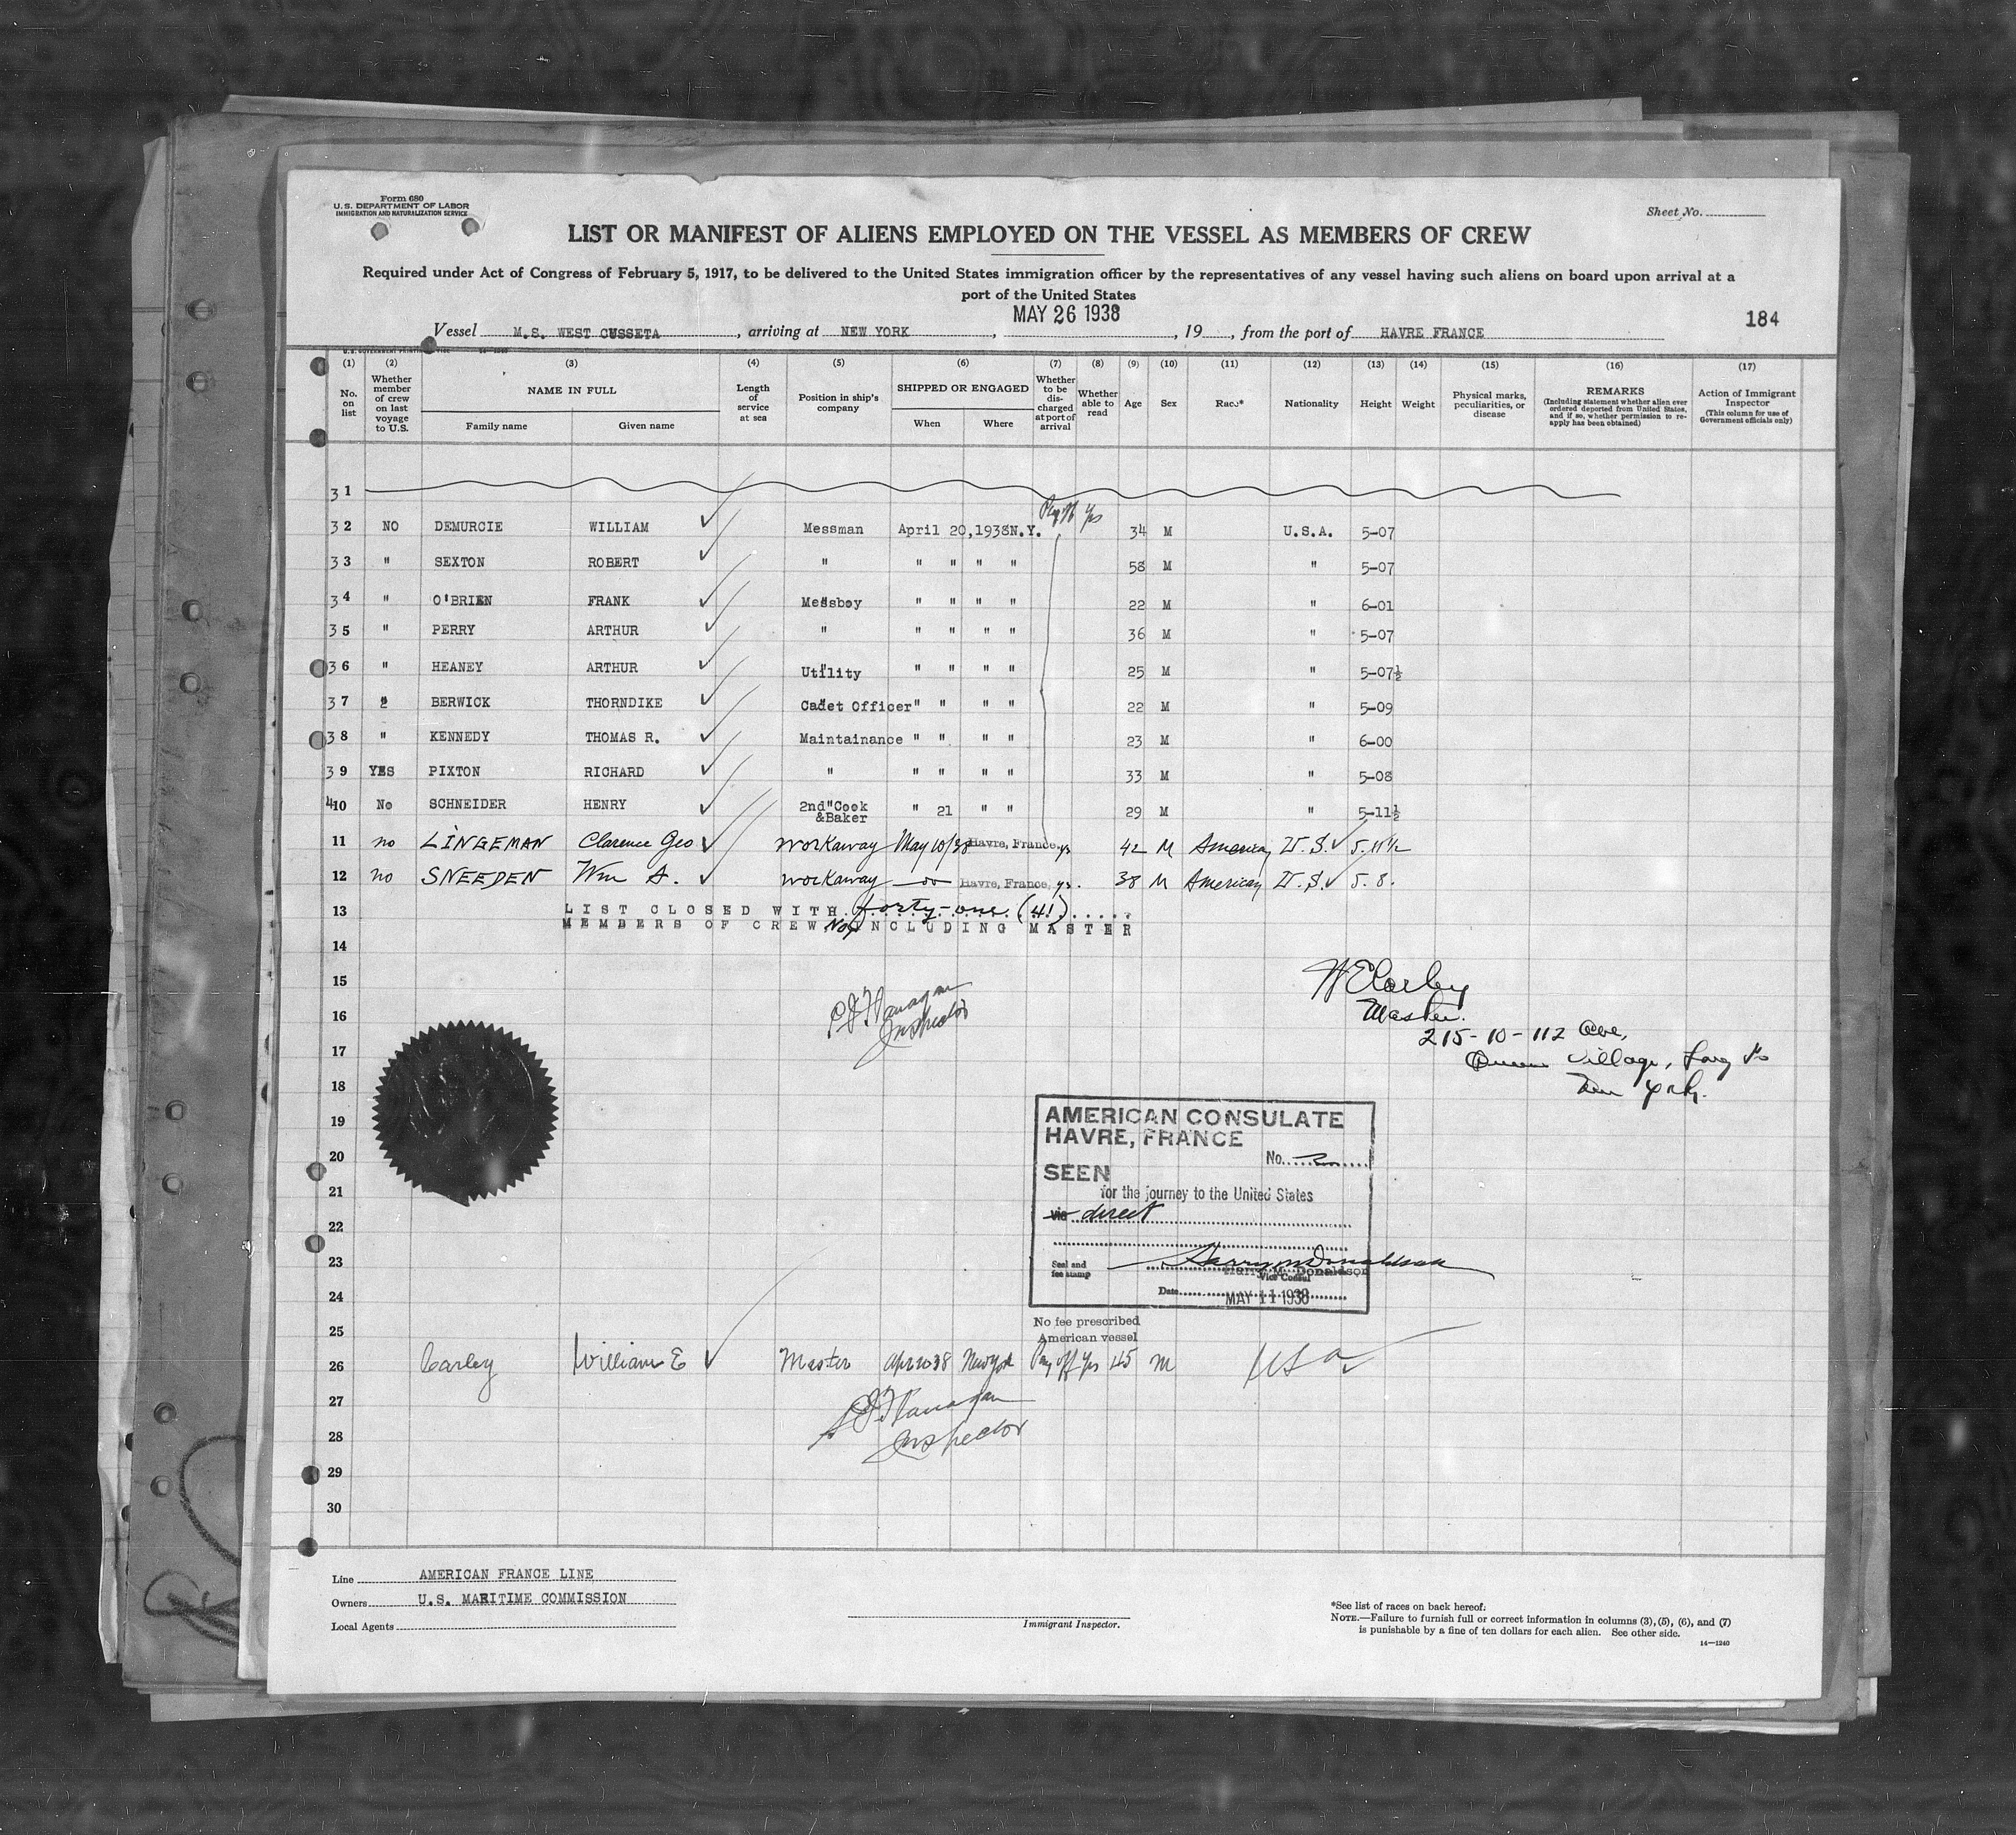 Form 680
U. S. DEPARTMENT OF LABOR
IMMIGRATION AND NATURALIZATION SERVICE
Sheet No.
LIST OR MANIFEST OF ALIENS EMPLOYED ON THE VESSEL AS MEMBERS OF CREW
Required under Act of Congress of February 5, 1917, to be delivered to the United States immigration officer by the representatives of any vessel having such aliens on board upon arrival at a
port of the United States
MAY 26 1938
184
Vessel M.S. WEST CUSSETA, arriving at NEW YORK, 19, from the port of HAVRE FRANCE
(1) (2) (3) (4) (5) (6) (7) (8) (9) (10) (11) (12) (13) (14) (15) (16) (17)
No. on list
Whether member of crew on last voyage to U.S.
NAME IN FULL
Family name Given name
Length of service at sea
Position in ship's company
SHIPPED OR ENGAGED
When Where
Whether to be discharged at port of arrival
Whether able to read
Age Sex Race* Nationality Height Weight
Physical marks, peculiarities, or disease
REMARKS
(Including statement whether alien ever ordered deported from United States, and if so, whether permission to re-apply has been obtained)
Action of Immigrant Inspector
(This column for use of Government officials only)
31
Pay off Yes
32 NO DEMURCIE WILLIAM Messman April 20,1938 N.Y. 34 M U.S.A. 5-07
33 " SEXTON ROBERT " " " " " 58 M " 5-07
34 " O'BRIEN FRANK Messboy " " " " 22 M " 6-01
35 " PERRY ARTHUR " " " " " 36 M " 5-07
36 " HEANEY ARTHUR Utility " " " " 25 M " 5-07½
37 " BERWICK THORNDIKE Cadet Officer " " " " 22 M " 5-09
38 " KENNEDY THOMAS R. Maintainance " " " " 23 M " 6-00
39 YES PIXTON RICHARD " " " " " 33 M " 5-08
410 No SCHNEIDER HENRY 2nd Cook &Baker " 21 " " 29 M " 5-11½
11 no LINGEMAN Clarence Geo workaway May 10/38 Havre, France, ys 42 M American U.S. 5.11½
12 no SNEEDEN Wm A. workaway do Havre, France, ys. 38 M American U.S. 5.8.
13 LIST CLOSED WITH forty-one (41)
MEMBERS OF CREW Not INCLUDING MASTER
14
15
16
17
18
19
20
21
22
23
24
25
P J Flanagan
Inspector
W E Carley
Master.
215-10-112 Ave,
Queens Village, Long Is
New York.
AMERICAN CONSULATE
HAVRE, FRANCE
No.
SEEN
for the journey to the United States
via direct
Harry M Donaldson
Seal and fee stamp
Harry M. Donaldson
Vice Consul
Date MAY 11 1938
No fee prescribed
American vessel
26 Carley William E Master Apr 20 38 New York Pay off Yes 45 M USA
27
28
29
30
P J Flanagan
Inspector
Line AMERICAN FRANCE LINE
Owners U.S. MARITIME COMMISSION
Local Agents
Immigrant Inspector.
*See list of races on back hereof.
NOTE.—Failure to furnish full or correct information in columns (3), (5), (6), and (7)
is punishable by a fine of ten dollars for each alien. See other side.
14—1240